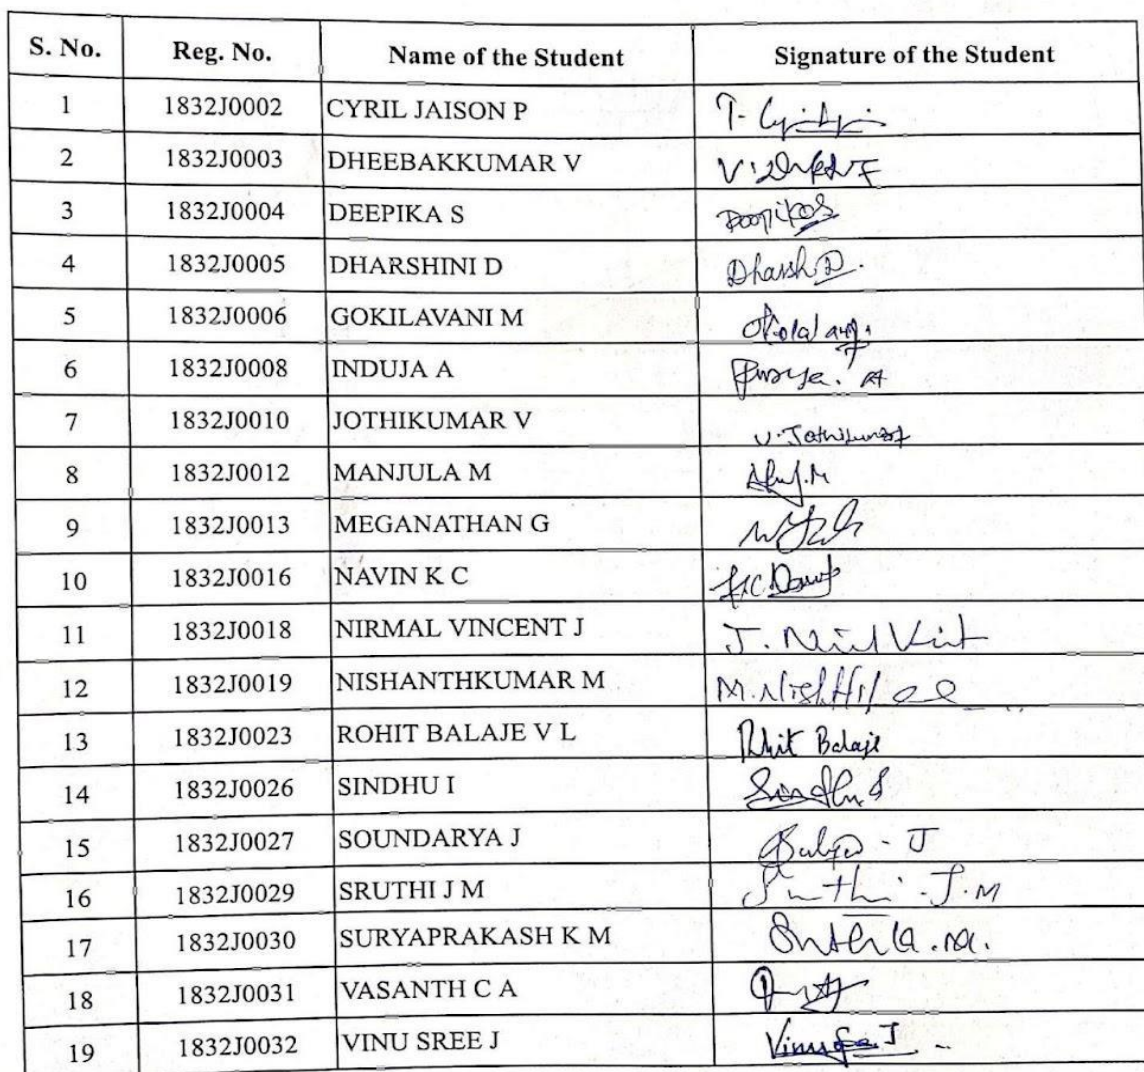 S. No. Reg. No. Name of the Student Signature of the Student
1 1832J0002 CYRIL JAISON P
2 1832J0003 DHEEBAKKUMAR V
3 1832J0004 DEEPIKA S
4 1832J0005 DHARSHINI D
5 1832J0006 GOKILAVANI M
6 1832J0008 INDUJA A
7 1832J0010 JOTHIKUMAR V
8 1832J0012 MANJULA M
9 1832J0013 MEGANATHAN G
10 1832J0016 NAVIN K C
11 1832J0018 NIRMAL VINCENT J
12 1832J0019 NISHANTHKUMAR M
13 1832J0023 ROHIT BALAJE V L Rohit Balaje
14 1832J0026 SINDHU I
15 1832J0027 SOUNDARYA J
16 1832J0029 SRUTHI J M Sruthi . J . M
17 1832J0030 SURYAPRAKASH K M
18 1832J0031 VASANTH C A
19 1832J0032 VINU SREE J